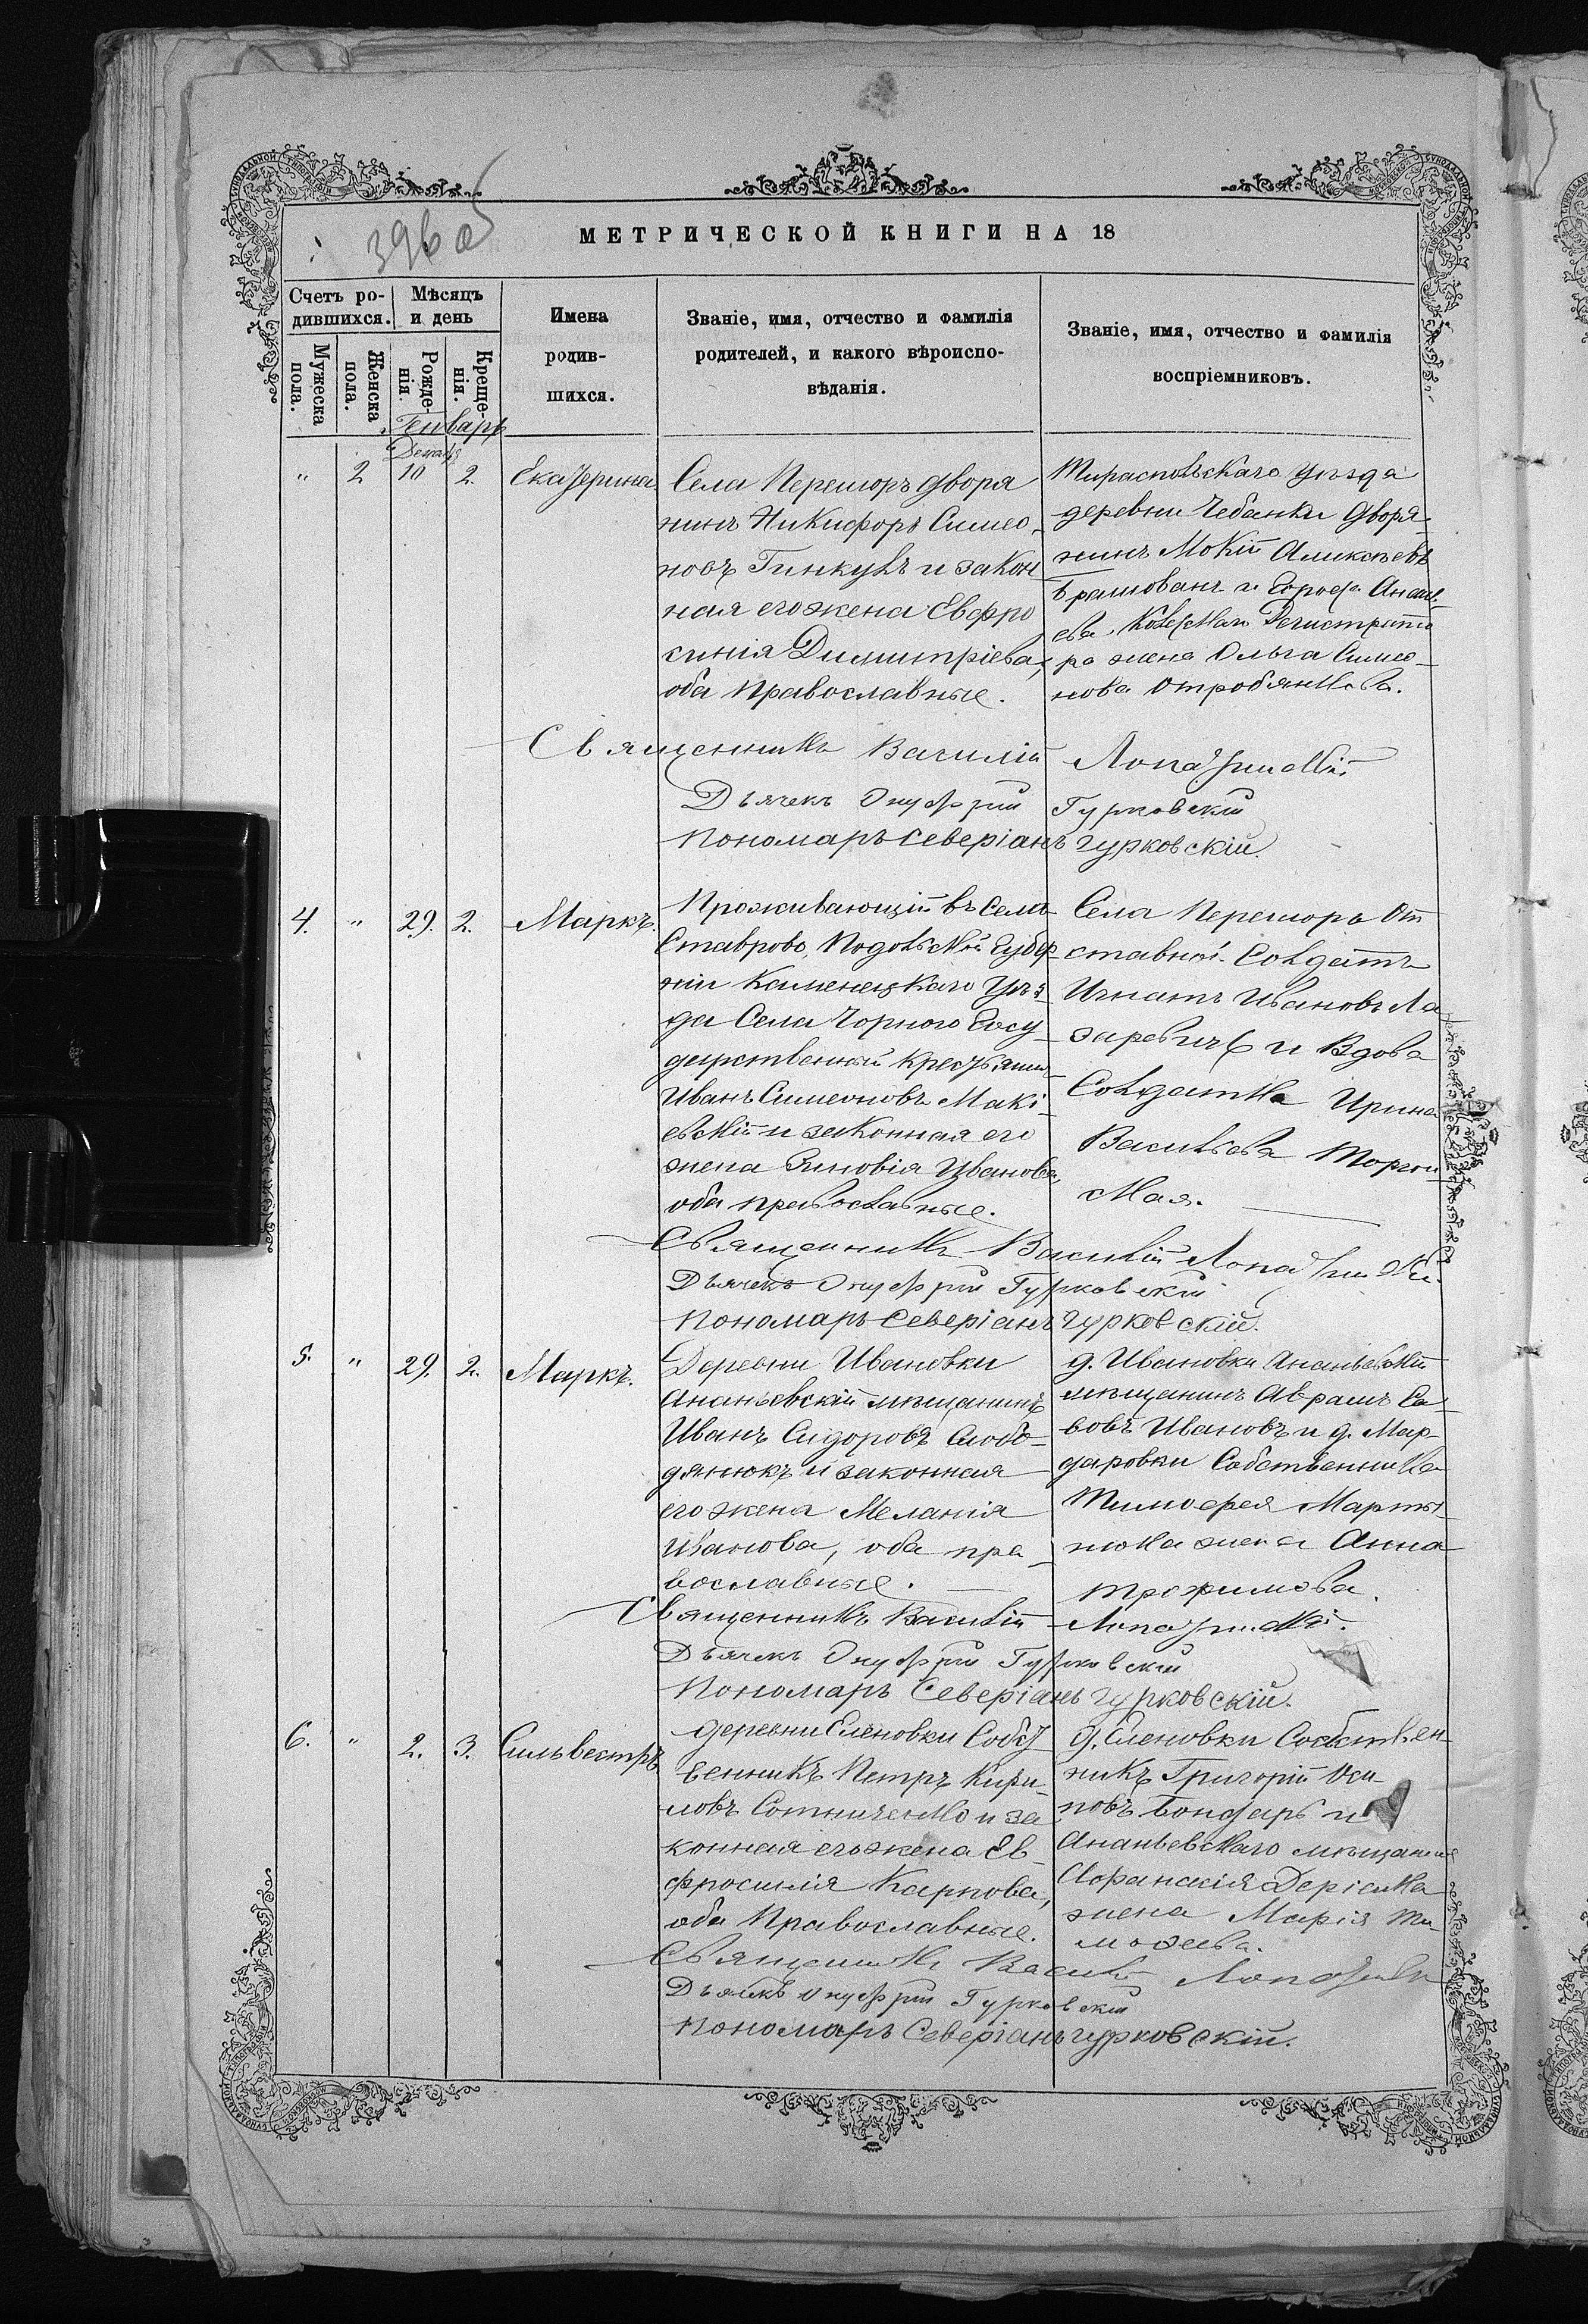 396 об
МЕТРИЧЕСКОЙ КНИГИ НА 18
Счетъ ро-
дившихся.
Мѣсяцъ
и день
Мужеска
пола.
Женска
пола.
Рожде-
нія.
Креще-
нія.
Имена
родив-
шихся.
Званіе, имя, отчество и фамилія
родителей, и какого вѣроиспо-
вѣданія.
Званіе, имя, отчество и фамилія
воспріемниковъ.
Генварь
" 2 10 2. Екатерина
Села Перешоръ дворя
нинъ Никифоръ Симео-
новъ Гинкулъ и закон
ная его жена Евфро
синія Димитріева,
оба православные.
Тираспольскаго уѣзда
деревни Чебанки дворя-
нинъ Мокій Алексѣевъ
ра жена Ольга Симео-
нова
Священникъ Василій
Дьячекъ Онуфрій Гурковскій
Пономарь Северіанъ Гурковскій.
4. " 29. 2. Маркъ.
Проживающій въ селѣ
Ставрово, Подольской Губер-
ніи Каменецкаго Уѣз-
да Села Чорного Госу-
дарственный крестьянинъ
Иванъ Симеоновъ Макі-
евскій и законная его
жена Зиновія Иванова,
оба православные.
Села Перешоръ От
ставной Солдатъ
Игнатъ Ивановъ Ла
заревичъ и Вдова
Солдатка Ирина
Васильева
ская.
Священникъ Василій
Дьячекъ Онуфрій Гурковскій
Пономарь Северіанъ Гурковскій.
5. " 29. 2. Маркъ.
Деревни Ивановки
Ананьевскій мѣщанинъ
Иванъ Сидоровъ Слобо-
дянюкъ и законная
его жена Меланія
Иванова, оба пра-
вославные.
д. Ивановки Ананьевскій
мѣщанинъ Аврамъ Са-
вовъ Ивановъ и д. Мар-
даровки Собственника
Тимофея Марты-
нюка жена Анна
Трофимова.
Священникъ Василій
Дьячекъ Онуфрій Гурковскій
Пономарь Северіанъ Гурковскій.
6. " 2. 3. Сильвестръ
деревни Еленовки Собст
венникъ Петръ Кири-
ловъ Сотниченко и за
конная его жена Ев-
фросинія Карпова,
оба Православные.
д. Еленовки Собствен-
никъ Григорій Оси-
повъ Бондарь и
Ананьевскаго мѣщанина
Афанасія
жена Марія Ти-
мофеева.
Священникъ Василій
Дьячекъ Онуфрій Гурковскій
Пономарь Северіанъ Гурковскій.